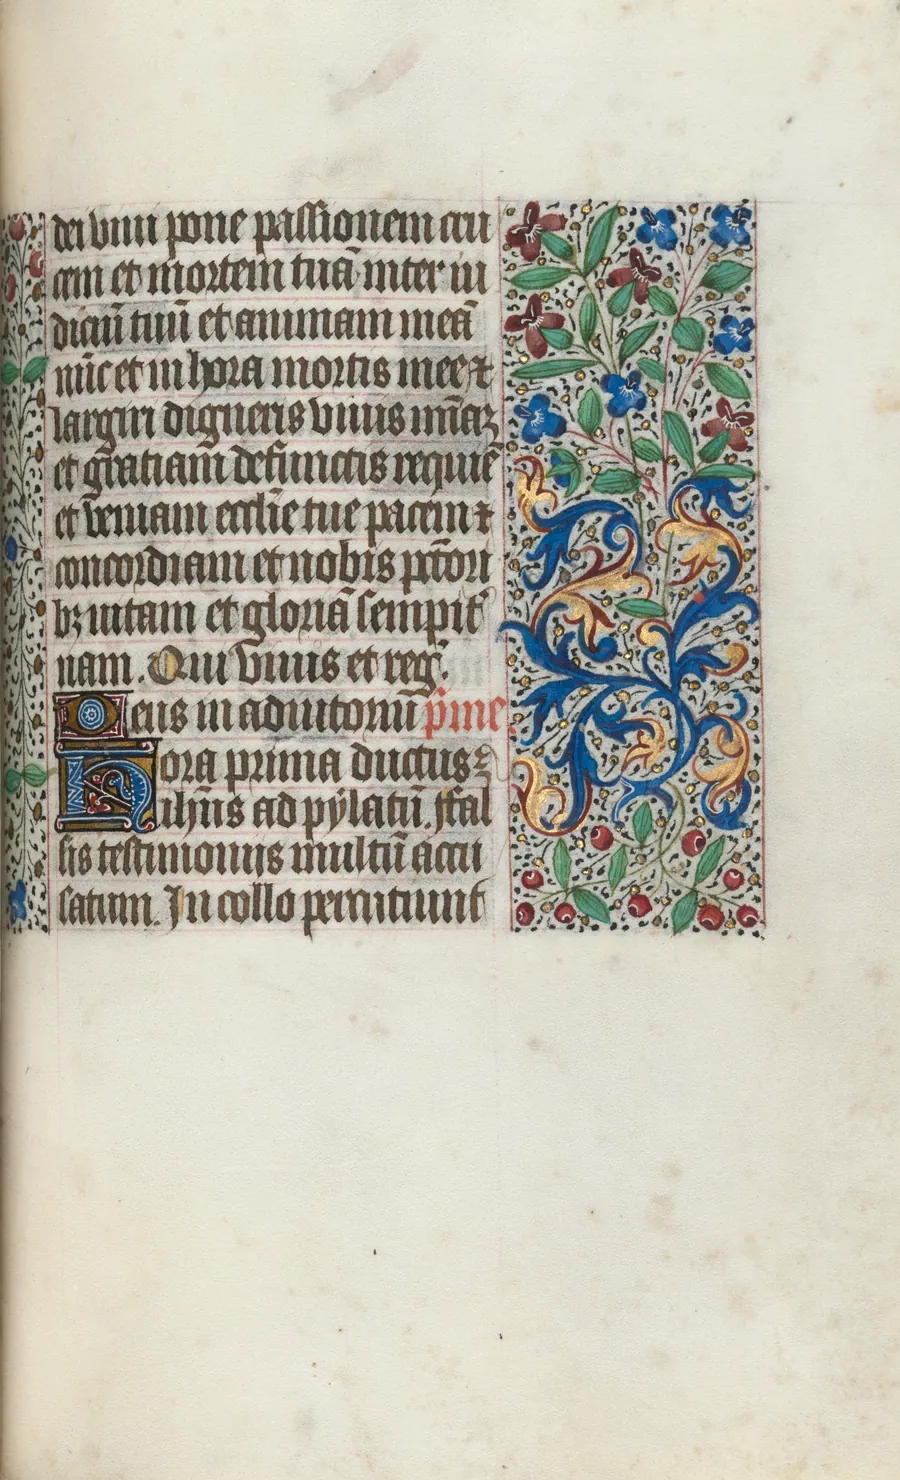 dei viui pone passionem cru
cem et mortem tuā inter iu
diciū tuū et animam meā
nūc et in hora mortis mee ⁊
largiri digneris viuis mīaꝫ
et gratiam defunctis requiē
et veniam ecclīe tue pacem ⁊
concordiam et nobis pctōri
bꝫ uitam et gloriā sempit̄
nam. Qui viuis et reḡ.
Deus in adiutoriū p̄me
Hora prima ductus ē
ihūs ad pylatū. ffal
sis testimoniis multū accu
satum. In collo percutiunt